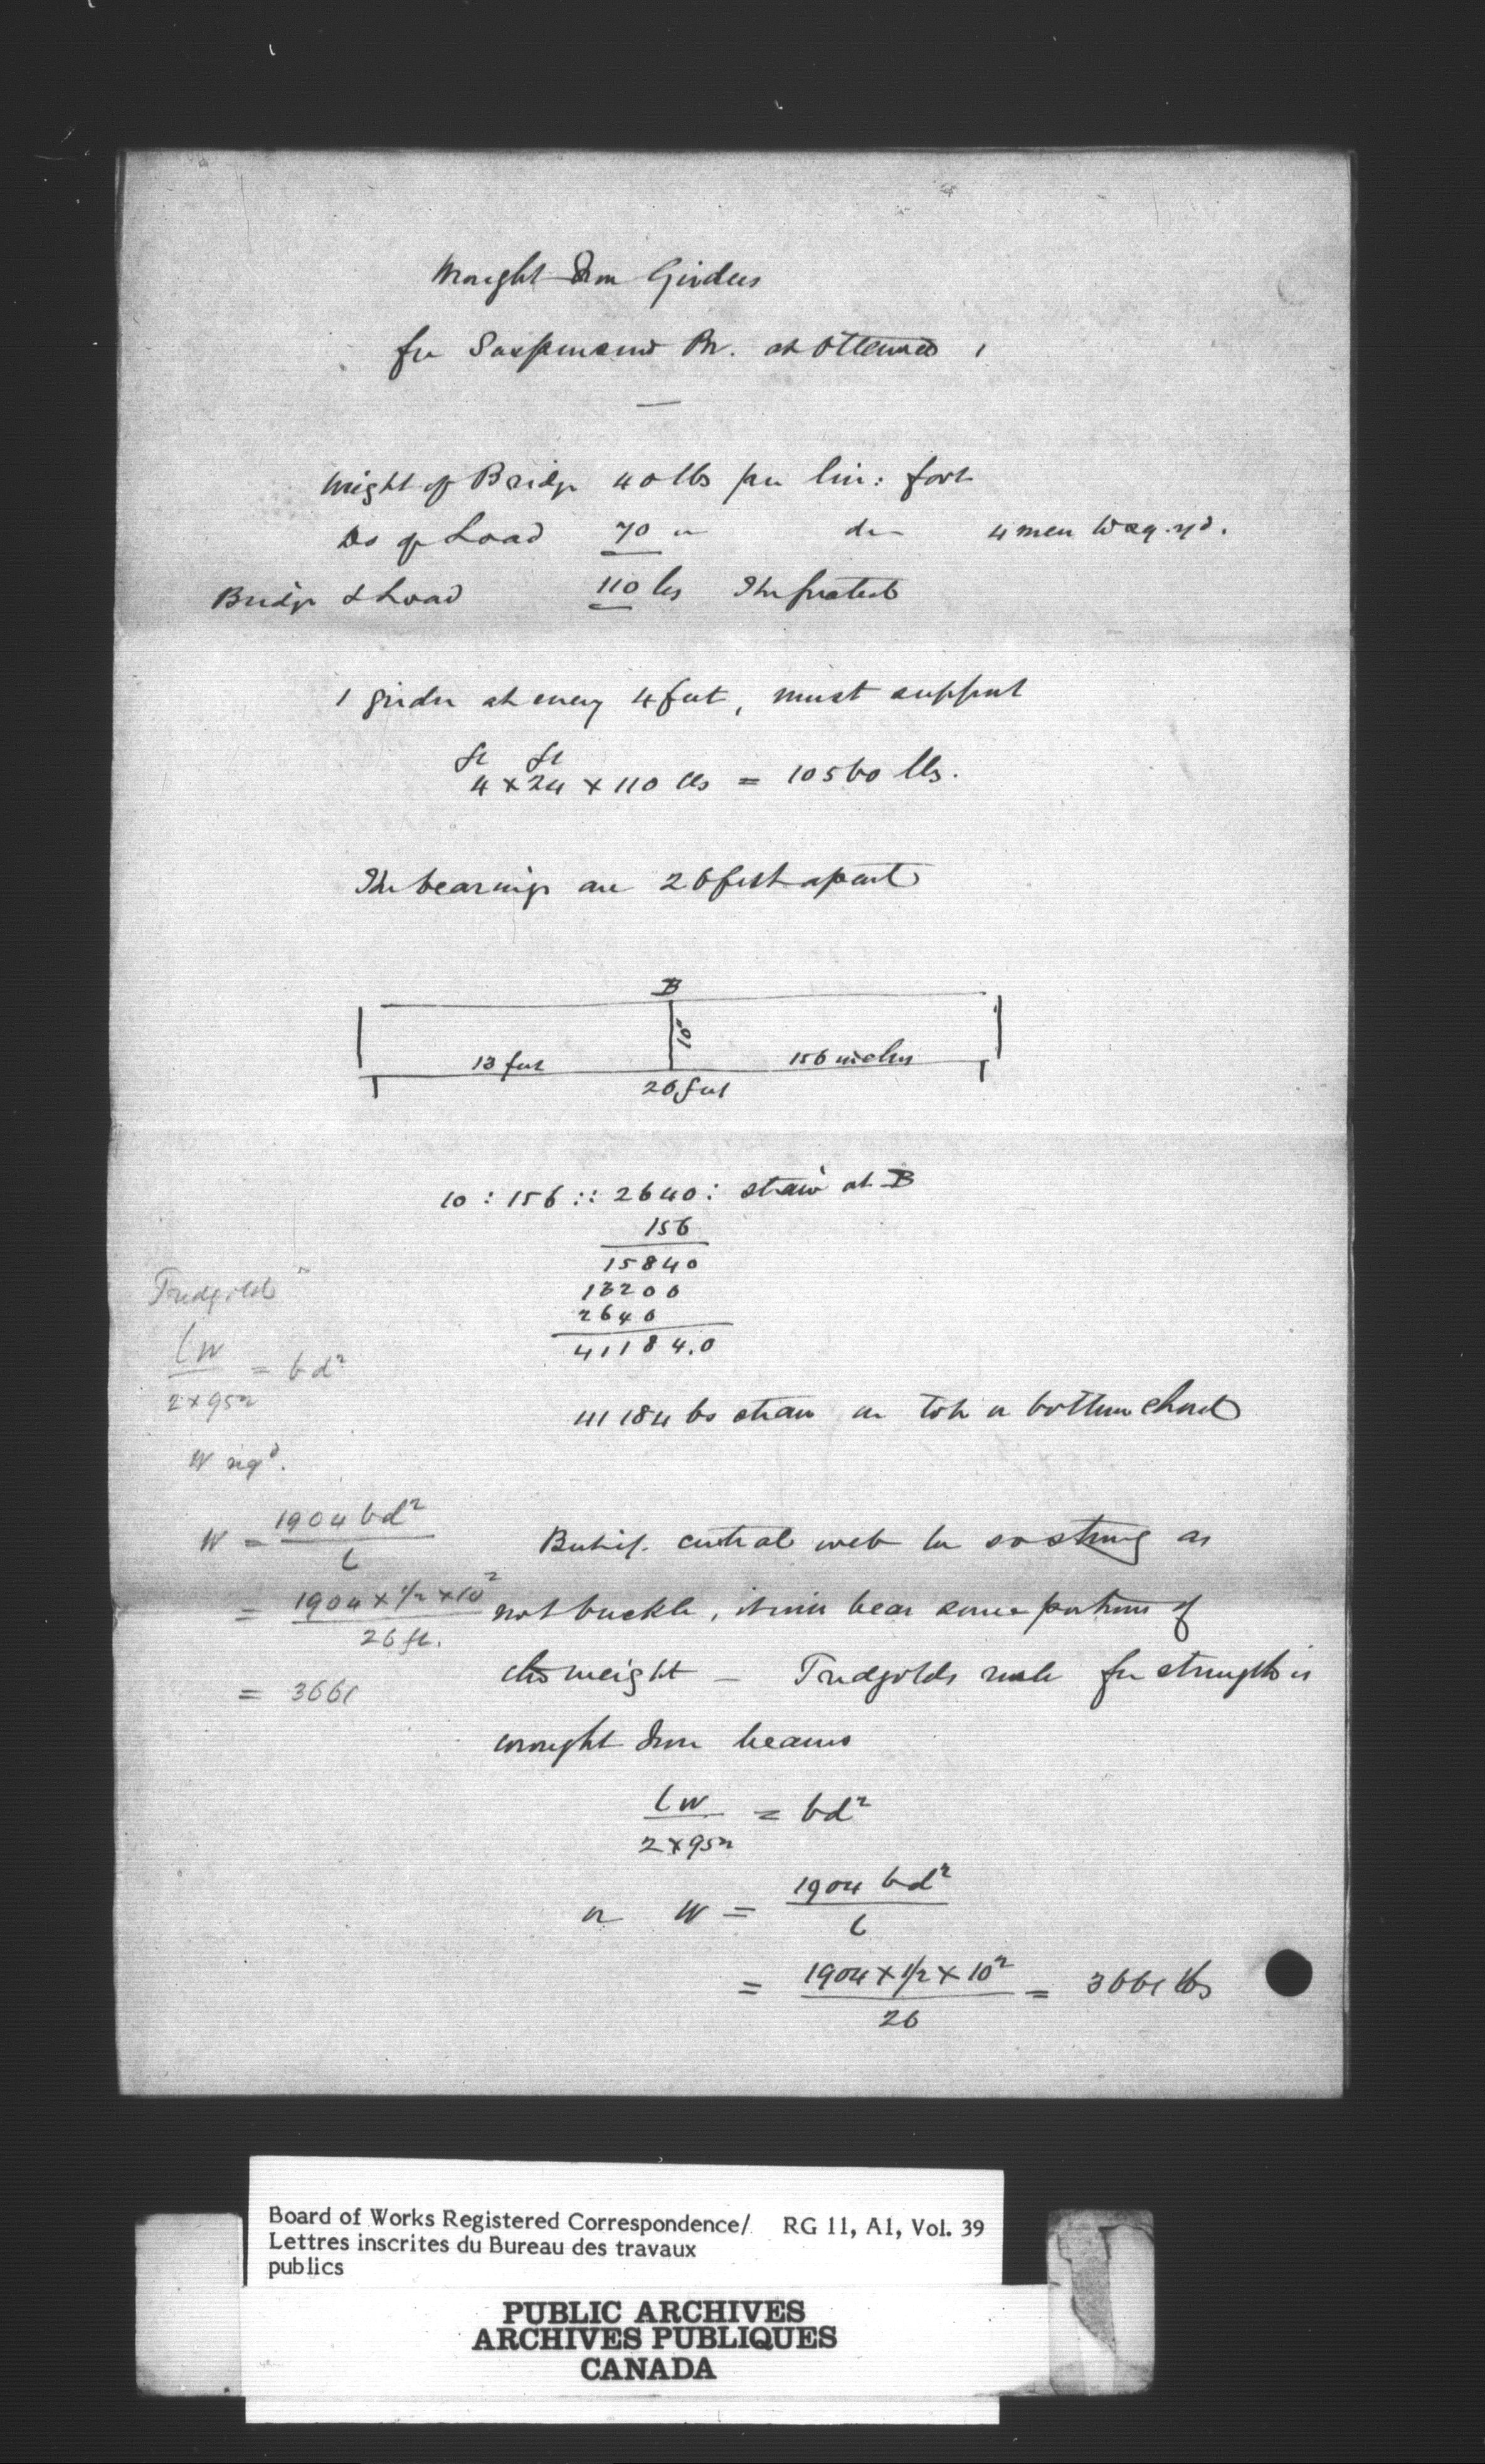 Wrought Iron Girders
for Suspension Br. at Ottawa
Weight of Bridge 40 lbs per lin: foot
Do of Load 70 " do 4 men to sq. yd.
Bridge & Load 110 lbs
1 girder at every 4 feet, must support
ft ft
4 × 24 × 110 lbs = 10560 lbs.
The bearings are 26 feet apart
B
10"
13 feet
156 inches
26 feet
10 : 156 :: 2640 : strain at B
156
15840
13200
2640
41184.0
41184 lbs strain on top or bottom chord
Tredgold
lW
2 × 952
= bd²
W reqd.
W = 1904 bd²
l
= 1904 × 1/2 × 10²
26 ft.
= 3661
But if central web be so strong as
not buckle, it will bear some portion of
the weight — Tredgolds rule for strength is
wrought Iron beams
lW
2 × 952
= bd²
or W = 1904 bd²
l
= 1904 × 1/2 × 10²
26
= 3661 lbs
Board of Works Registered Correspondence/ RG 11, A1, Vol. 39
Lettres inscrites du Bureau des travaux
publics
PUBLIC ARCHIVES
ARCHIVES PUBLIQUES
CANADA